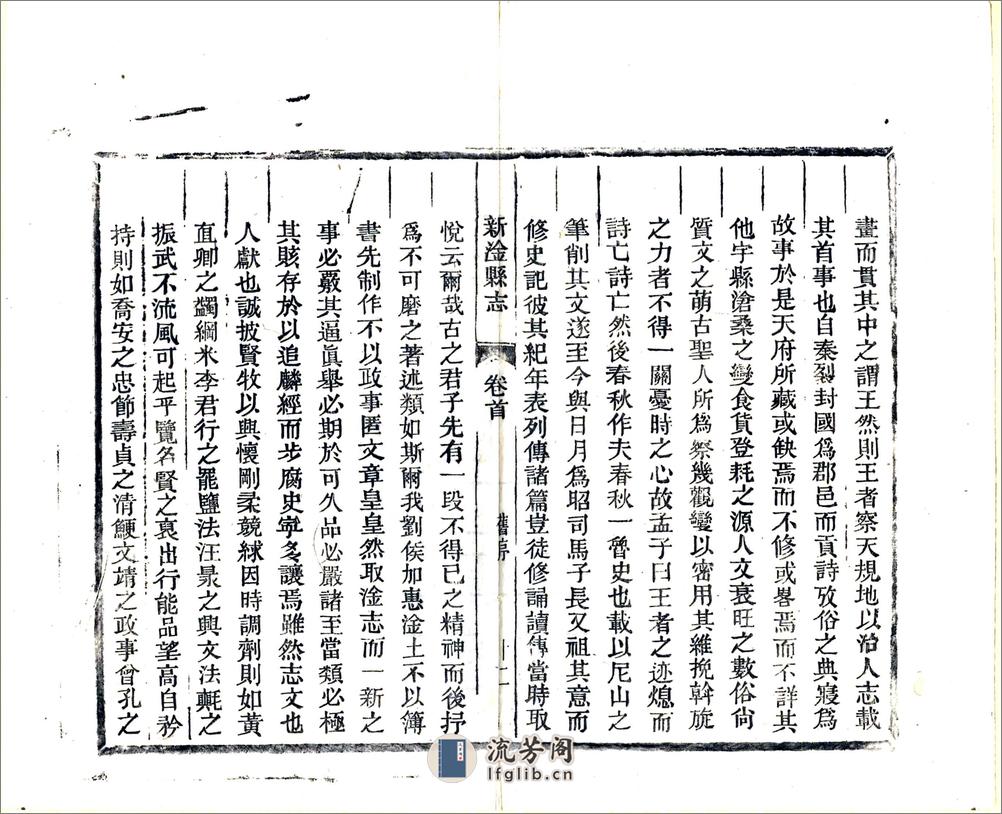 畫而貫其中之謂王然則王者察天規地以治人志載
其首事也自秦裂封國爲郡邑而貢詩攷俗之典寢爲
故事於是天府所藏或缺焉而不修或畧焉而不詳其
他字縣滄桑之變食貨登耗之源人文衰旺之數俗尙
質文之萌古聖人所爲察幾觀變以密用其維挽斡旋
之力者不得一關憂時之心故孟子曰王者之迹熄而
詩亡詩亡然後春秋作夫春秋一魯史也載以尼山之
筆削其文遂至今與日月爲昭司馬子長又祖其意而
修史記彼其紀年表列傳諸篇豈徒修誦讀傳當時取
新淦縣志
卷首
舊序
十一
悅云爾哉古之君子先有一段不得已之精神而後抒
爲不可磨之著述類如斯爾我劉侯加惠淦土不以簿
書先制作不以政事匿文章皇皇然取淦志而一新之
事必嚴其逼眞舉必期於可久品必嚴諸至當類必極
其賅存於以追麟經而步腐史寧多讓焉雖然志文也
人獻也誠披賢牧以興懷剛柔競絿因時調劑則如黃
直卿之蠲綱米李君行之罷鹽法汪泉之興文法氈之
振武不流風可起乎覽名賢之裒出行能品望高自矜
持則如喬安之忠節壽貞之清鯁文靖之政事曾孔之
流芳阁
lfglib.cn